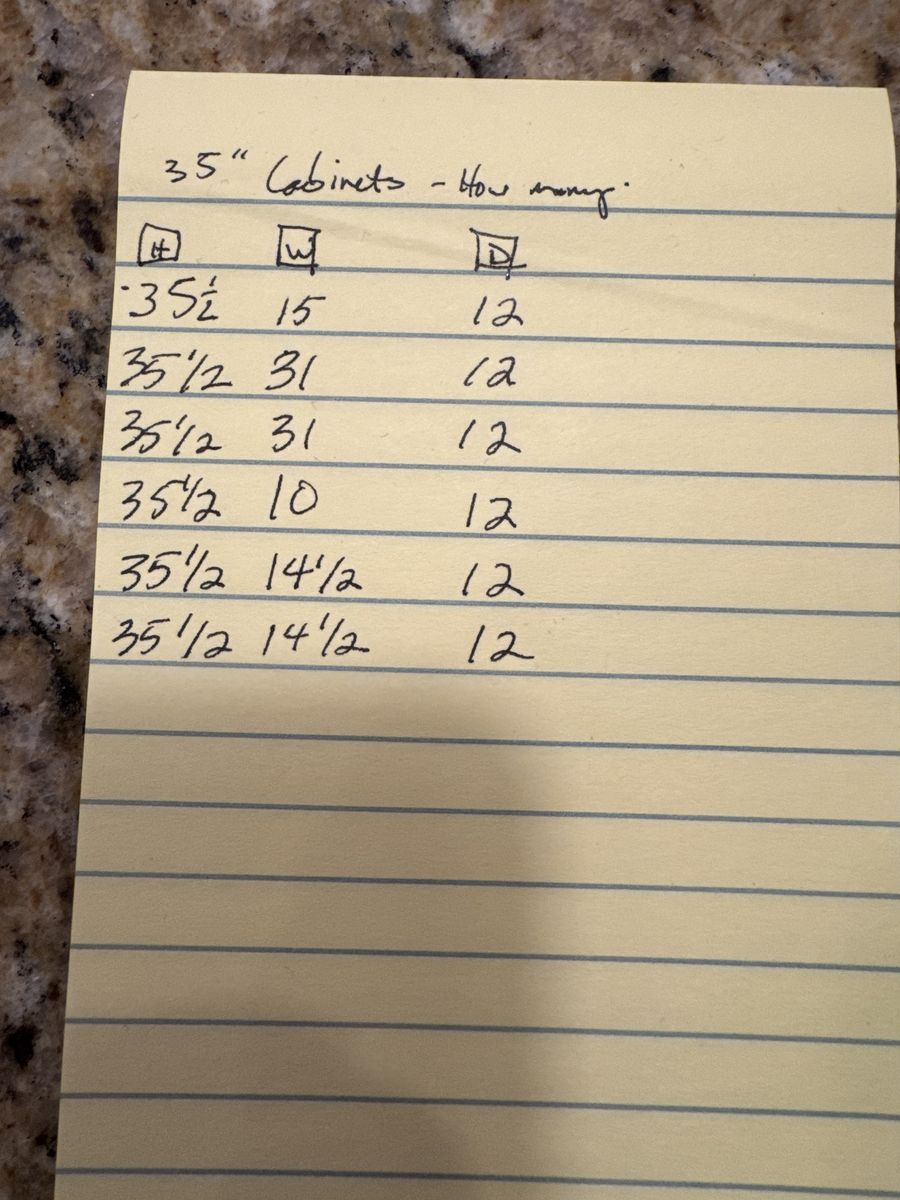 35" Cabinets - How many.
H W D
35 1/2 15 12
35 1/2 31 12
35 1/2 31 12
35 1/2 10 12
35 1/2 14 1/2 12
35 1/2 14 1/2 12